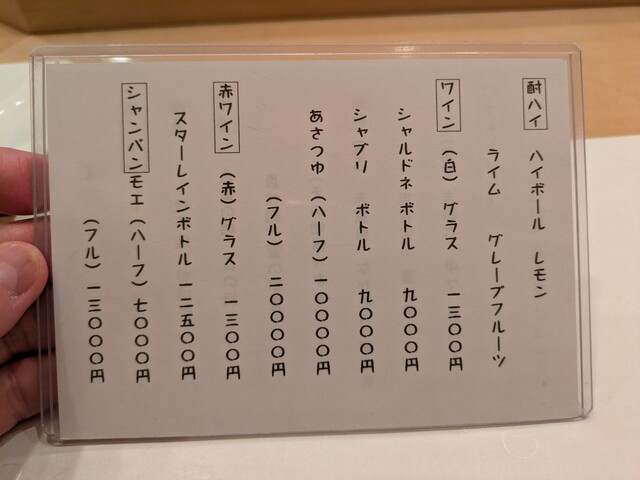 酎ハイ ハイボール レモン
ライム グレープフルーツ
ワイン (白) グラス 一三〇〇円
シャルドネ ボトル 九〇〇〇円
シャブリ ボトル 九〇〇〇円
あさつゆ (ハーフ) 一〇〇〇〇円
(フル) 二〇〇〇〇円
赤ワイン (赤) グラス 一三〇〇円
スターレインボトル 一二五〇〇円
シャンパン モエ (ハーフ) 七〇〇〇円
(フル) 一三〇〇〇円